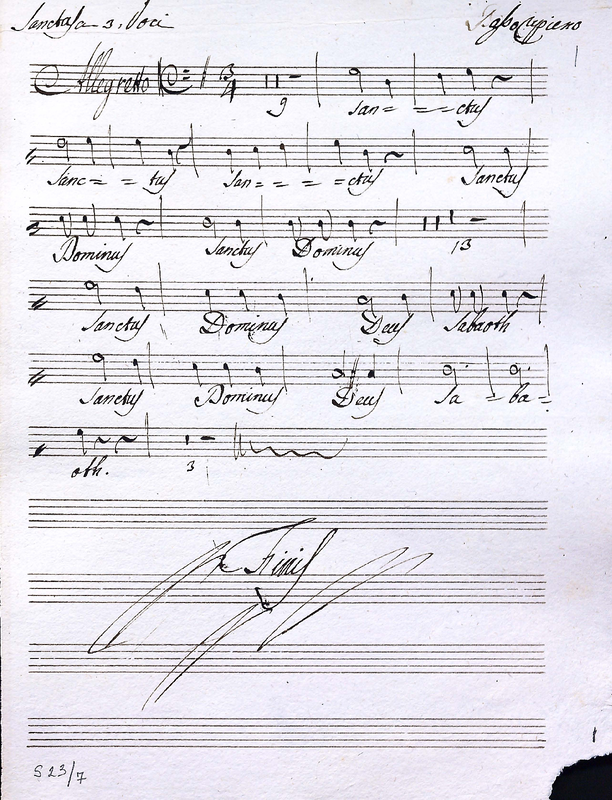 Sanctus a 3. Voci
Allegretto 3/4 9 San = = = ctus
Sanc = = tus San = = = = ctus Sanctus
Dominus Sanctus Dominus 13
Sanctus Dominus Deus Sabaoth
Sanctus Dominus Deus Sa = ba =
oth. 3
Finis
S 23/7